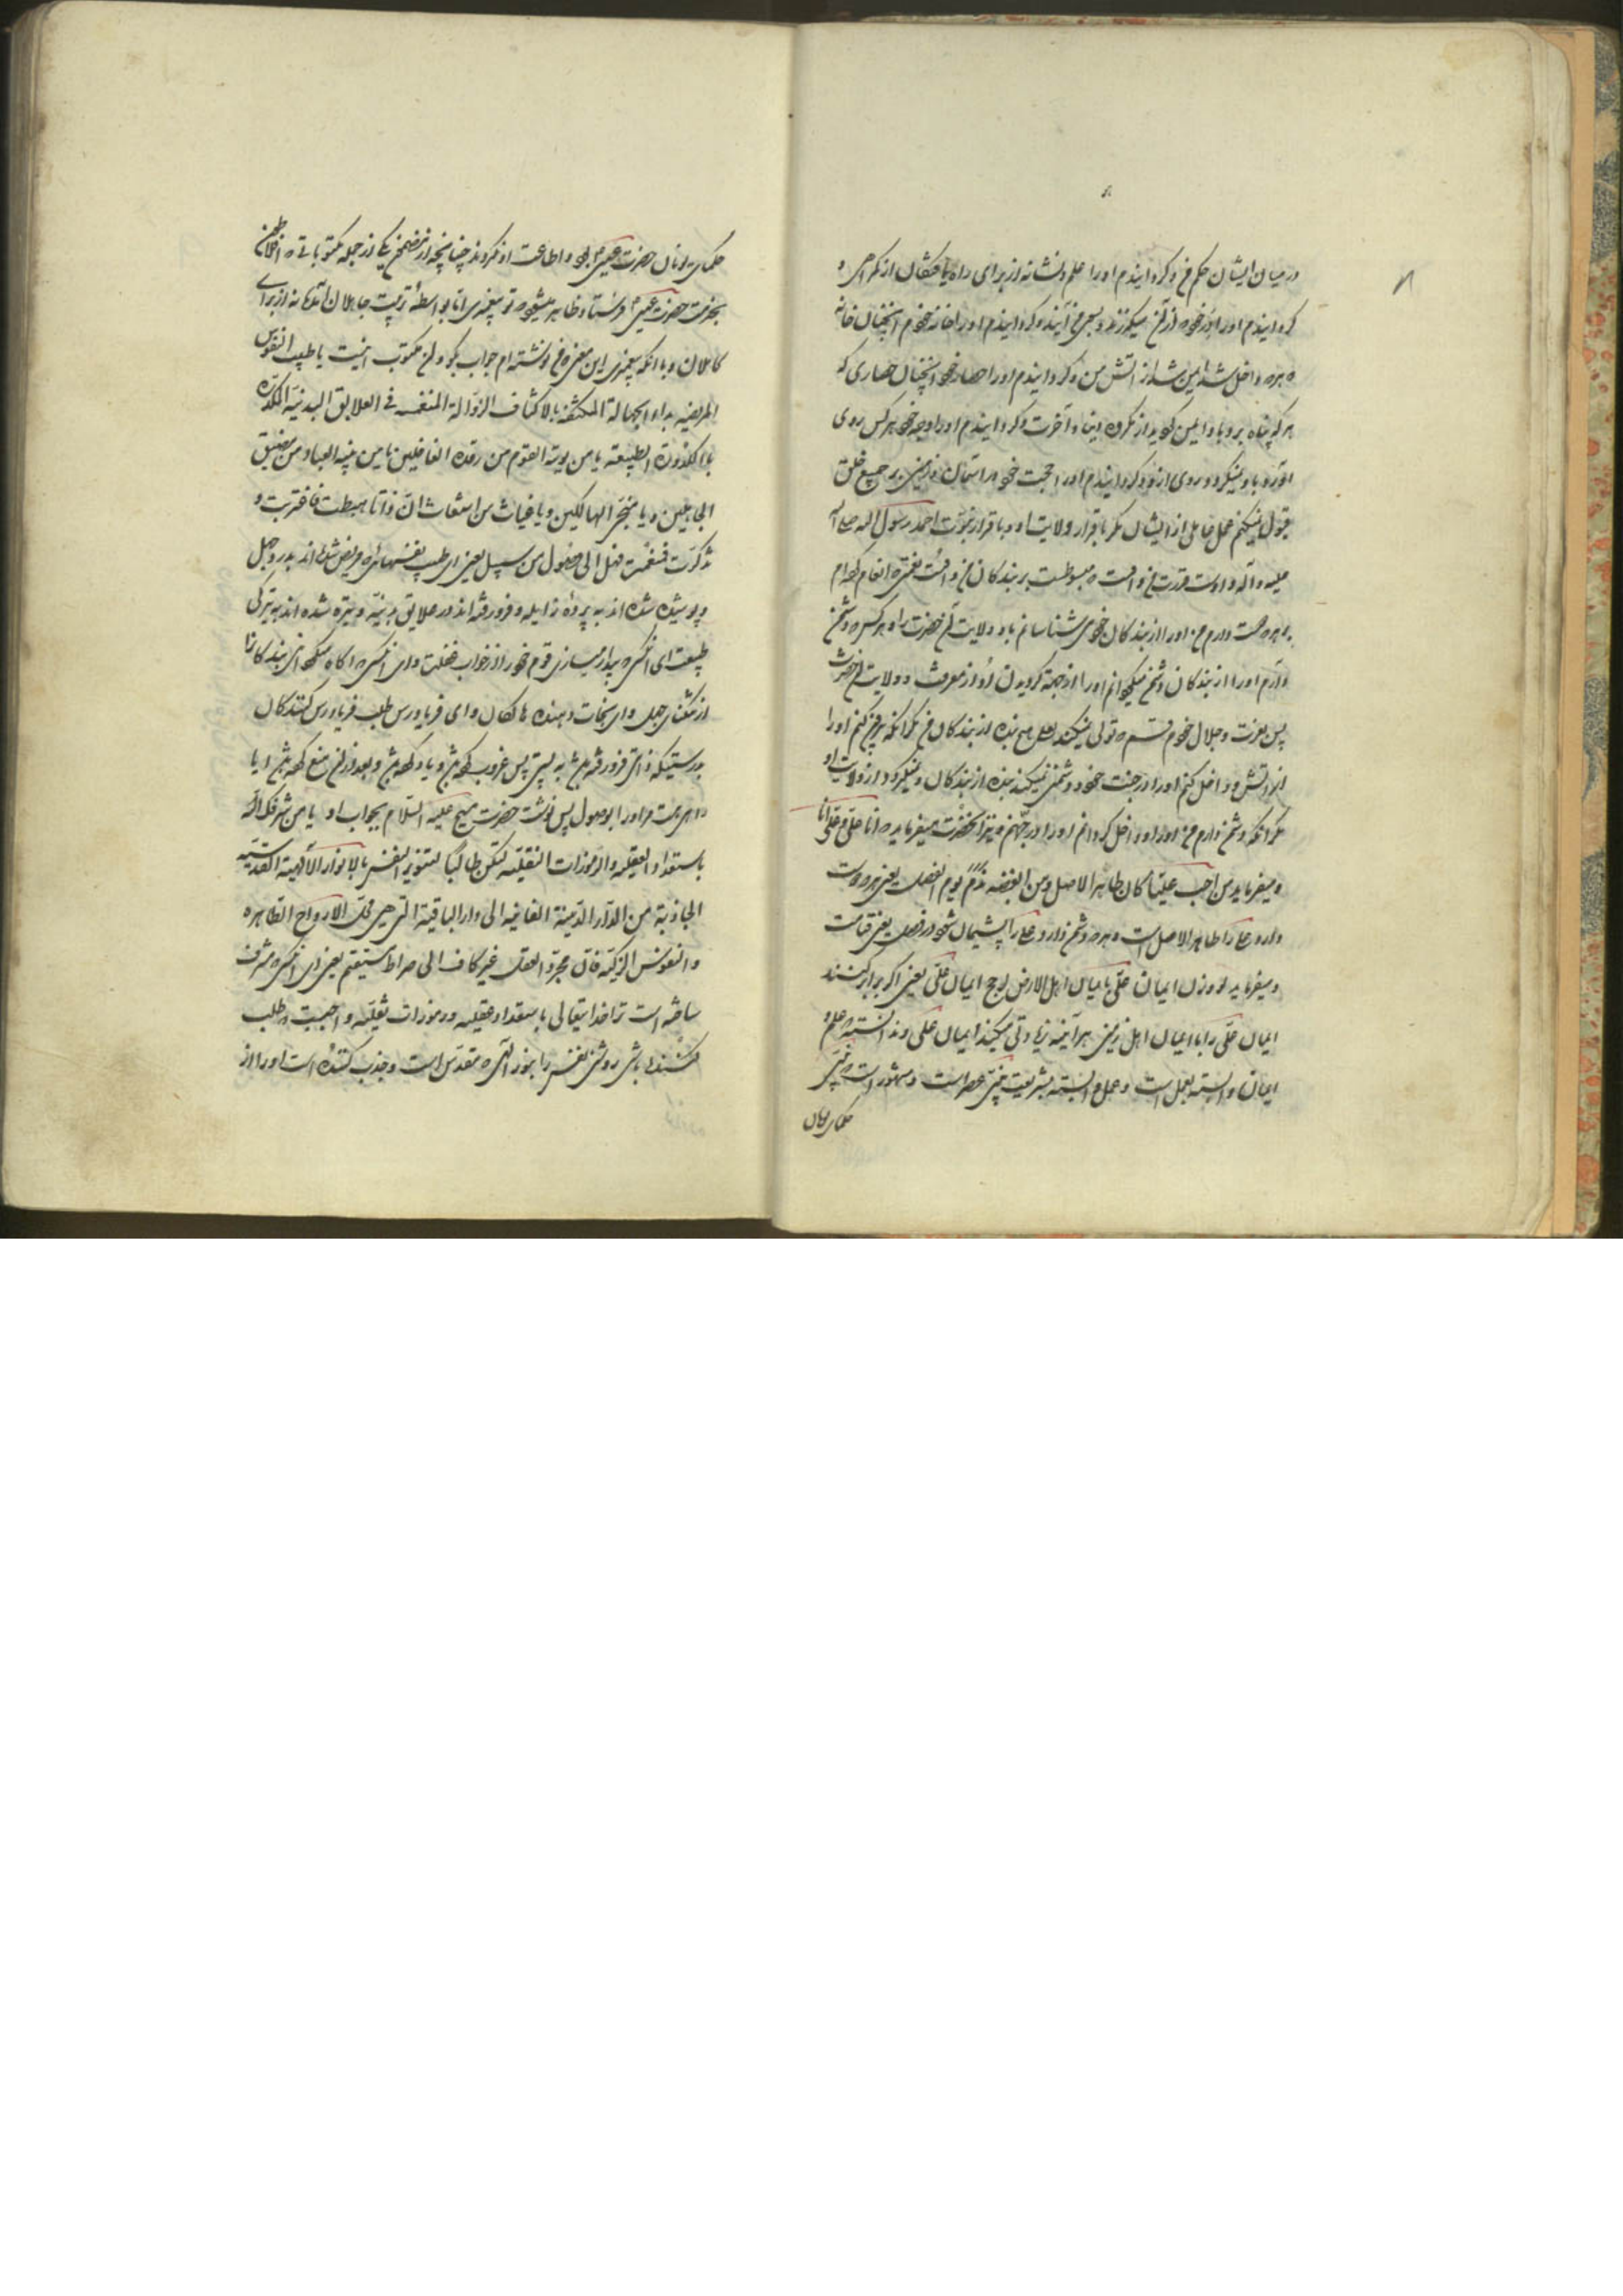 در میان ایشان حکم من و کردانیدم اورا علم و نشانه از برای راه یافتگان از گمراهی و
کردانیدم اورا در خود که از آن میگذرند و بسوی من آیند و کردانیدم اورا خانه خودم آنچنان خانه
که هرکه داخل شد ایمن شد از آتش من و کردانیدم اورا حصار خود آنچنان حصاری که
هر که پناه برد باو ایمن گردد از مکروه دنیا و آخرت و کردانیدم اورا وجه خود هر کس روی
آورد باو نمیگردد روی از او و کردانیدم اورا حجت خود در آسمان و زمین بر جمیع خلق
قبول نمیکنم عمل عاملی از ایشان مکر باقرار ولایت او و باقرار نبوت احمد رسول الله صلی الله
علیه و آله و اوست قدرت من و دست که مبسوط است بر بندگان من و اوست نعمتی که انعام کرده‌ام
هر که دوست دارم من اورا از بندگان خود می شناسانم باو ولایت آن حضرت را و هر کس که دشمن
دارم اورا از بندگان دشمن میگردانم اورا از جهة گردیدن او از معرفت و ولایت آن حضرت
پس بعزت و جلال خودم قسم که تولی نمیکند بعلی هیچ بنده از بندگان من مگر آنکه بیرون کنم اورا
از آتش و داخل کنم اورا در جنت خود و دشمنی نمیکند بنده از بندگان و نمیگردد از ولایت او
مگر آنکه دشمن دارم من اورا و داخل گردانم اورا در جهنم و نیز آنحضرت میفرماید که انا علی و علی انا
و میفرماید من احب علیا کان طاهر الاصل و من ابغضه ندم یوم الفصل یعنی هر که دوست
دارد علی را طاهر الاصل است و هر که دشمن دارد علی را پشیمان شود در فصل یعنی قیامت
و میفرماید لو وزن ایمان علی بایمان اهل الارض لرجح ایمان علی یعنی اگر برابر کنند
ایمان علی را با ایمان اهل زمین هر آینه زیادتی میکند ایمان علی
ایمان وابسته بعمل است و عمل وابسته بشریعت نبی عصر است و مشهور است که
حکمای یونان
حکمای یونان حضرت عیسی بود و اطاعت او نکردند چنانچه از یکی از جمله مکتوباتی که افلاطون
بخدمت حضرت عیسی فرستاد ظاهر میشود که تو پیغمبری اما بواسطه تربیت جاهلان آمده نه از برای
کاملان و با آنکه پیغمبری این من نوشته ام جواب بگو و آن مکتوب اینست یا طبیب النفوس
المریضه بداء الجهالة المکتنفه بالاکتناف الرذالة المنغمسه فی العلایق البدنیة المکدره
بالکدورة الطبیعة یا من یوقظ القوم من رقدة الغافلین یا من ینبه العباد من مضیق
الجاهلین و یا منجی الهالکین و یا غیاث من استغاث ان ذاتا هبطت فاغتربت و
تذکرت فمنعت فهل الی وصول من سبیل یعنی ای طبیب نفسهائی که مریض شده اند بدرد جهل
و پوشیده شده اند به پرده رذایل و فرو رفته اند در علایق بدنیه و تیره شده اند به تیرگی
طبیعت ای آنکسی که بیدار میسازی قوم خود را از خواب غفلت و ای آنکسی که آگاه میگردانی بندگانرا
از تنگنای جهل و ای نجات دهنده هالکان و ای فریادرس طلب فریادرس کنندگان
بدرستیکه ذاتی فرو رفته به پستی پس غروب کرده و یاد کرده و بعد از آن منع کرده شد ایا
راهی هست مر اورا بوصول پس نوشت حضرت مسیح علیه السلام بجواب او یا من شرفک الله
باستعداد العقلیه و الرموزات النقلیه لتکن طالبا لتنویر النفس بالانوار الالهیة القدسیه
الجاذبة من الدار الدنیة الفانیه الی دار الباقیة التی هی محل الارواح الطاهره
و النفوس الزکیه فان مجرد العقل غیر کاف الی صراط مستقیم یعنی ای آنکسی که مشرف
ساخته است ترا خدایتعالی باستعداد عقلیه و رموزات نقلیه واجبست که طلب
کننده باشی روشنی نفس را بنور الهی که مقدس است و جذب کننده است اورا از